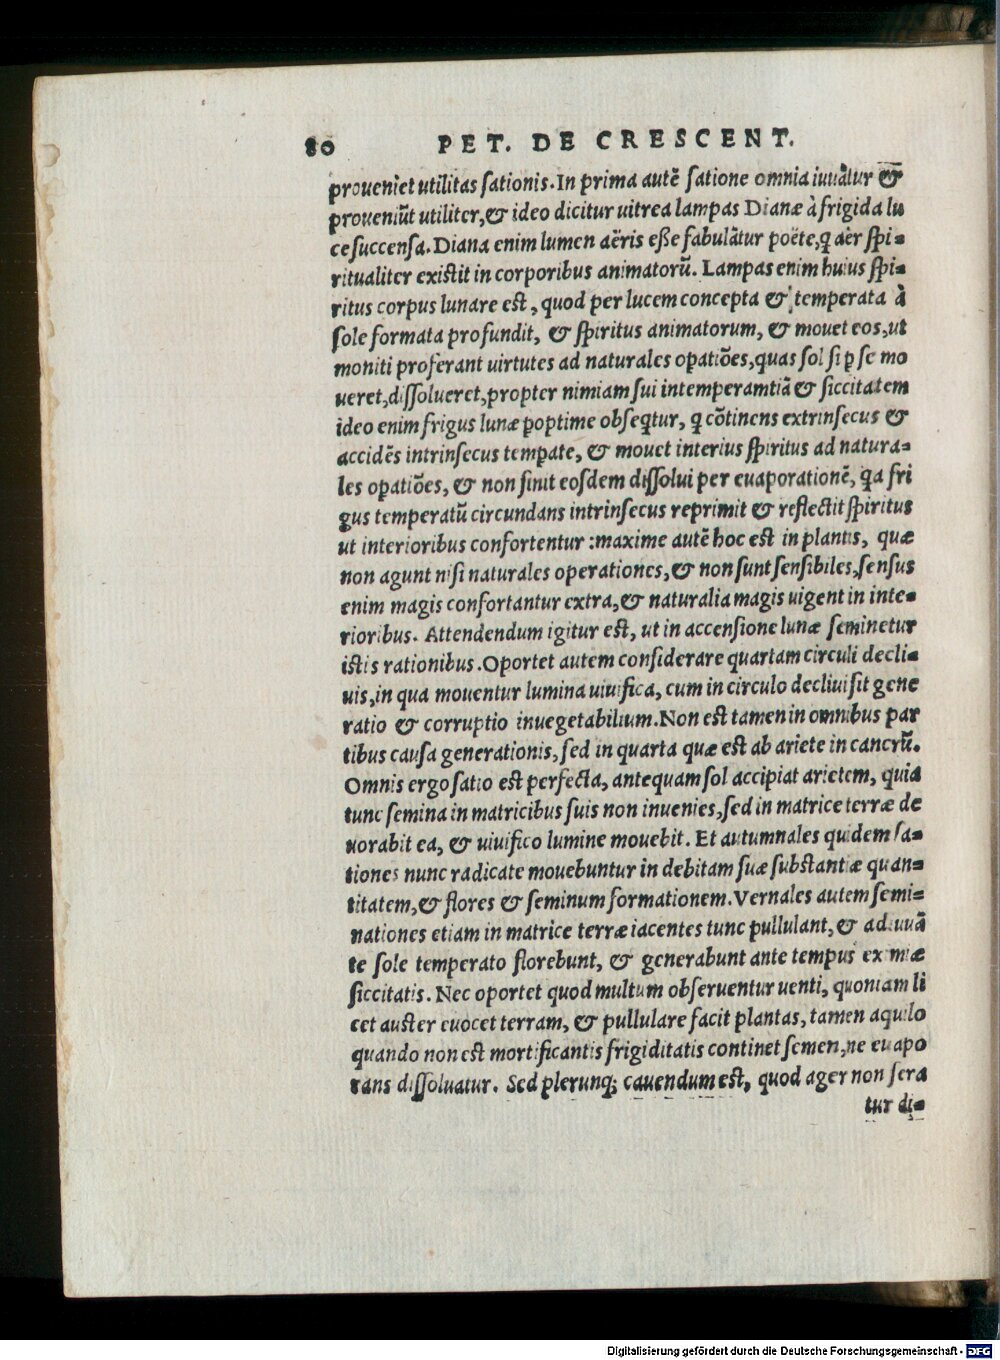 80 PET. DE CRESCENT.
proueniet utilitas sationis. In prima autē satione omnia iuuātur &
proueniūt utiliter, & ideo dicitur uitrea lampas Dianæ à frigida lu
ce succensa. Diana enim lumen aëris eſſe fabulātur poëte, ꝗ aër spi=
ritualiter existit in corporibus animatorū. Lampas enim huius spi=
ritus corpus lunare est, quod per lucem concepta & temperata à
sole formata profundit, & spiritus animatorum, & mouet eos, ut
moniti proferant uirtutes ad naturales opatiões, quas sol si ꝑ se mo
ueret, dissolueret, propter nimiam sui intemperamtiā & siccitatem
ideo enim frigus lunæ ꝑoptime obseqtur, ꝗ cōtinens extrinsecus &
accidēs intrinsecus temꝑate, & mouet interius spiritus ad natura=
les opatiões, & non sinit eosdem dissolui per euaporationē, ꝗa fri
gus temperatū circundans intrinsecus reprimit & reflectit spiritus
ut interioribus confortentur: maxime autē hoc est in plantis, quæ
non agunt nisi naturales operationes, & non sunt sensibiles, sensus
enim magis confortantur extra, & naturalia magis uigent in inte=
rioribus. Attendendum igitur est, ut in accensione lunæ seminetur
istis rationibus. Oportet autem considerare quartam circuli decli=
uis, in qua mouentur lumina uiuifica, cum in circulo decliui sit gene
ratio & corruptio inuegetabilium. Non est tamen in omnibus par
tibus causa generationis, sed in quarta quæ est ab ariete in cancrū.
Omnis ergo satio est perfecta, antequam sol accipiat arietem, quia
tunc semina in matricibus suis non inuenies, sed in matrice terræ de
uorabit ea, & uiuifico lumine mouebit. Et autumnales quidem sa=
tiones nunc radicate mouebuntur in debitam suæ substantiæ quan=
titatem, & flores & seminum formationem. Vernales autem semi=
nationes etiam in matrice terræ iacentes tunc pullulant, & adiuuā
te sole temperato florebunt, & generabunt ante tempus
siccitatis. Nec oportet quod multum obseruentur uenti, quoniam li
cet auster euocet terram, & pullulare facit plantas, tamen aquilo
quando non est mortificantis frigiditatis continet semen, ne euapo
rans dissoluatur. Sed plerunq; cauendum est, quod ager non sera
tur di=
Digitalisierung gefördert durch die Deutsche Forschungsgemeinschaft - DFG